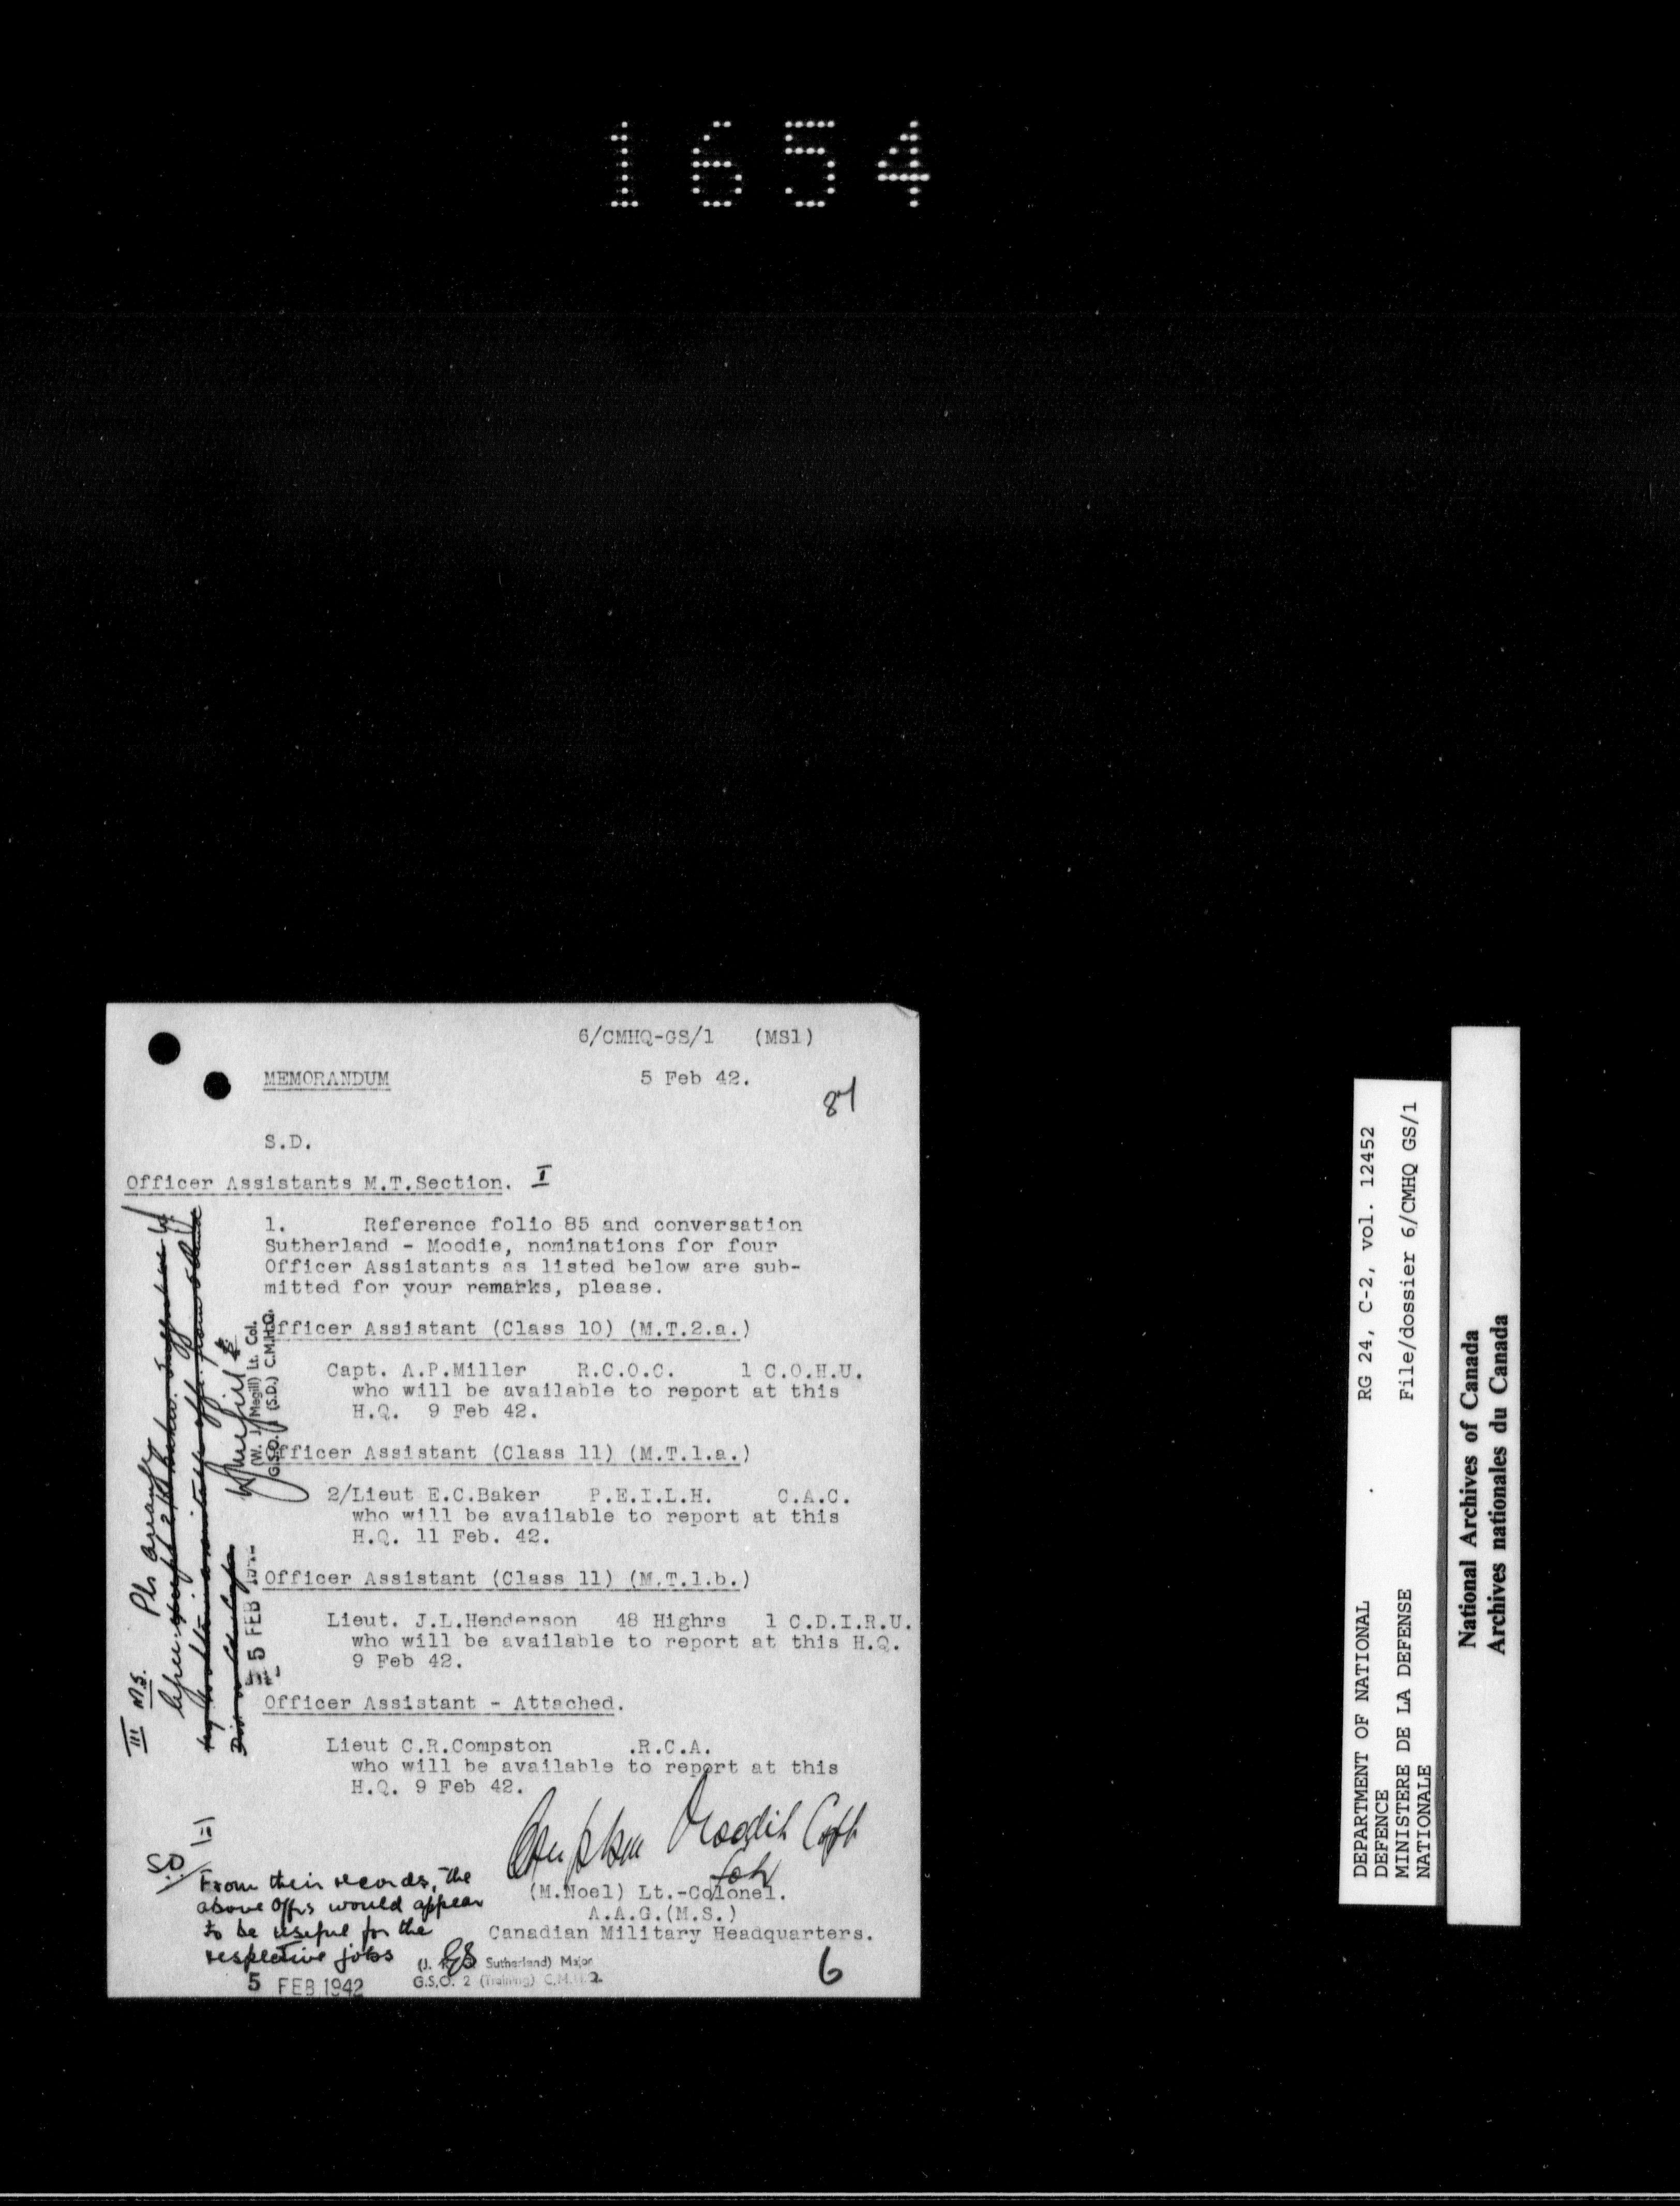 1654
6/CMHQ-GS/1 (MS1)
MEMORANDUM
5 Feb 42.
87
S.D.
Officer Assistants M.T.Section. I
1. Reference folio 85 and conversation
Sutherland - Moodie, nominations for four
Officer Assistants as listed below are sub-
mitted for your remarks, please.
Officer Assistant (Class 10) (M.T.2.a.)
Capt. A.P.Miller R.C.O.C. 1 C.O.H.U.
who will be available to report at this
H.Q. 9 Feb 42.
Officer Assistant (Class 11) (M.T.1.a.)
2/Lieut E.C.Baker P.E.I.L.H. C.A.C.
who will be available to report at this
H.Q. 11 Feb. 42.
Officer Assistant (Class 11) (M.T.1.b.)
Lieut. J.L.Henderson 48 Highrs 1 C.D.I.R.U.
who will be available to report at this H.Q.
9 Feb 42.
Officer Assistant - Attached.
Lieut C.R.Compston .R.C.A.
who will be available to report at this
H.Q. 9 Feb 42.
Moodie Capt
for
(M.Noel) Lt.-Colonel.
A.A.G.(M.S.)
Canadian Military Headquarters.
6
S.D. II
From their records, the
above Offrs would appear
to be useful for the
respective jobs
5 FEB 1942
(J. Sutherland) Major
G.S.O. 2 (Training) C.M.H.Q.
III M.S. Pls arrange
(W. J. Megill) Lt. Col.
G.S.O. 1 (S.D.) C.M.H.Q.
5 FEB
DEPARTMENT OF NATIONAL RG 24, C-2, vol. 12452
DEFENCE
MINISTERE DE LA DEFENSE File/dossier 6/CMHQ GS/1
NATIONALE
National Archives of Canada
Archives nationales du Canada